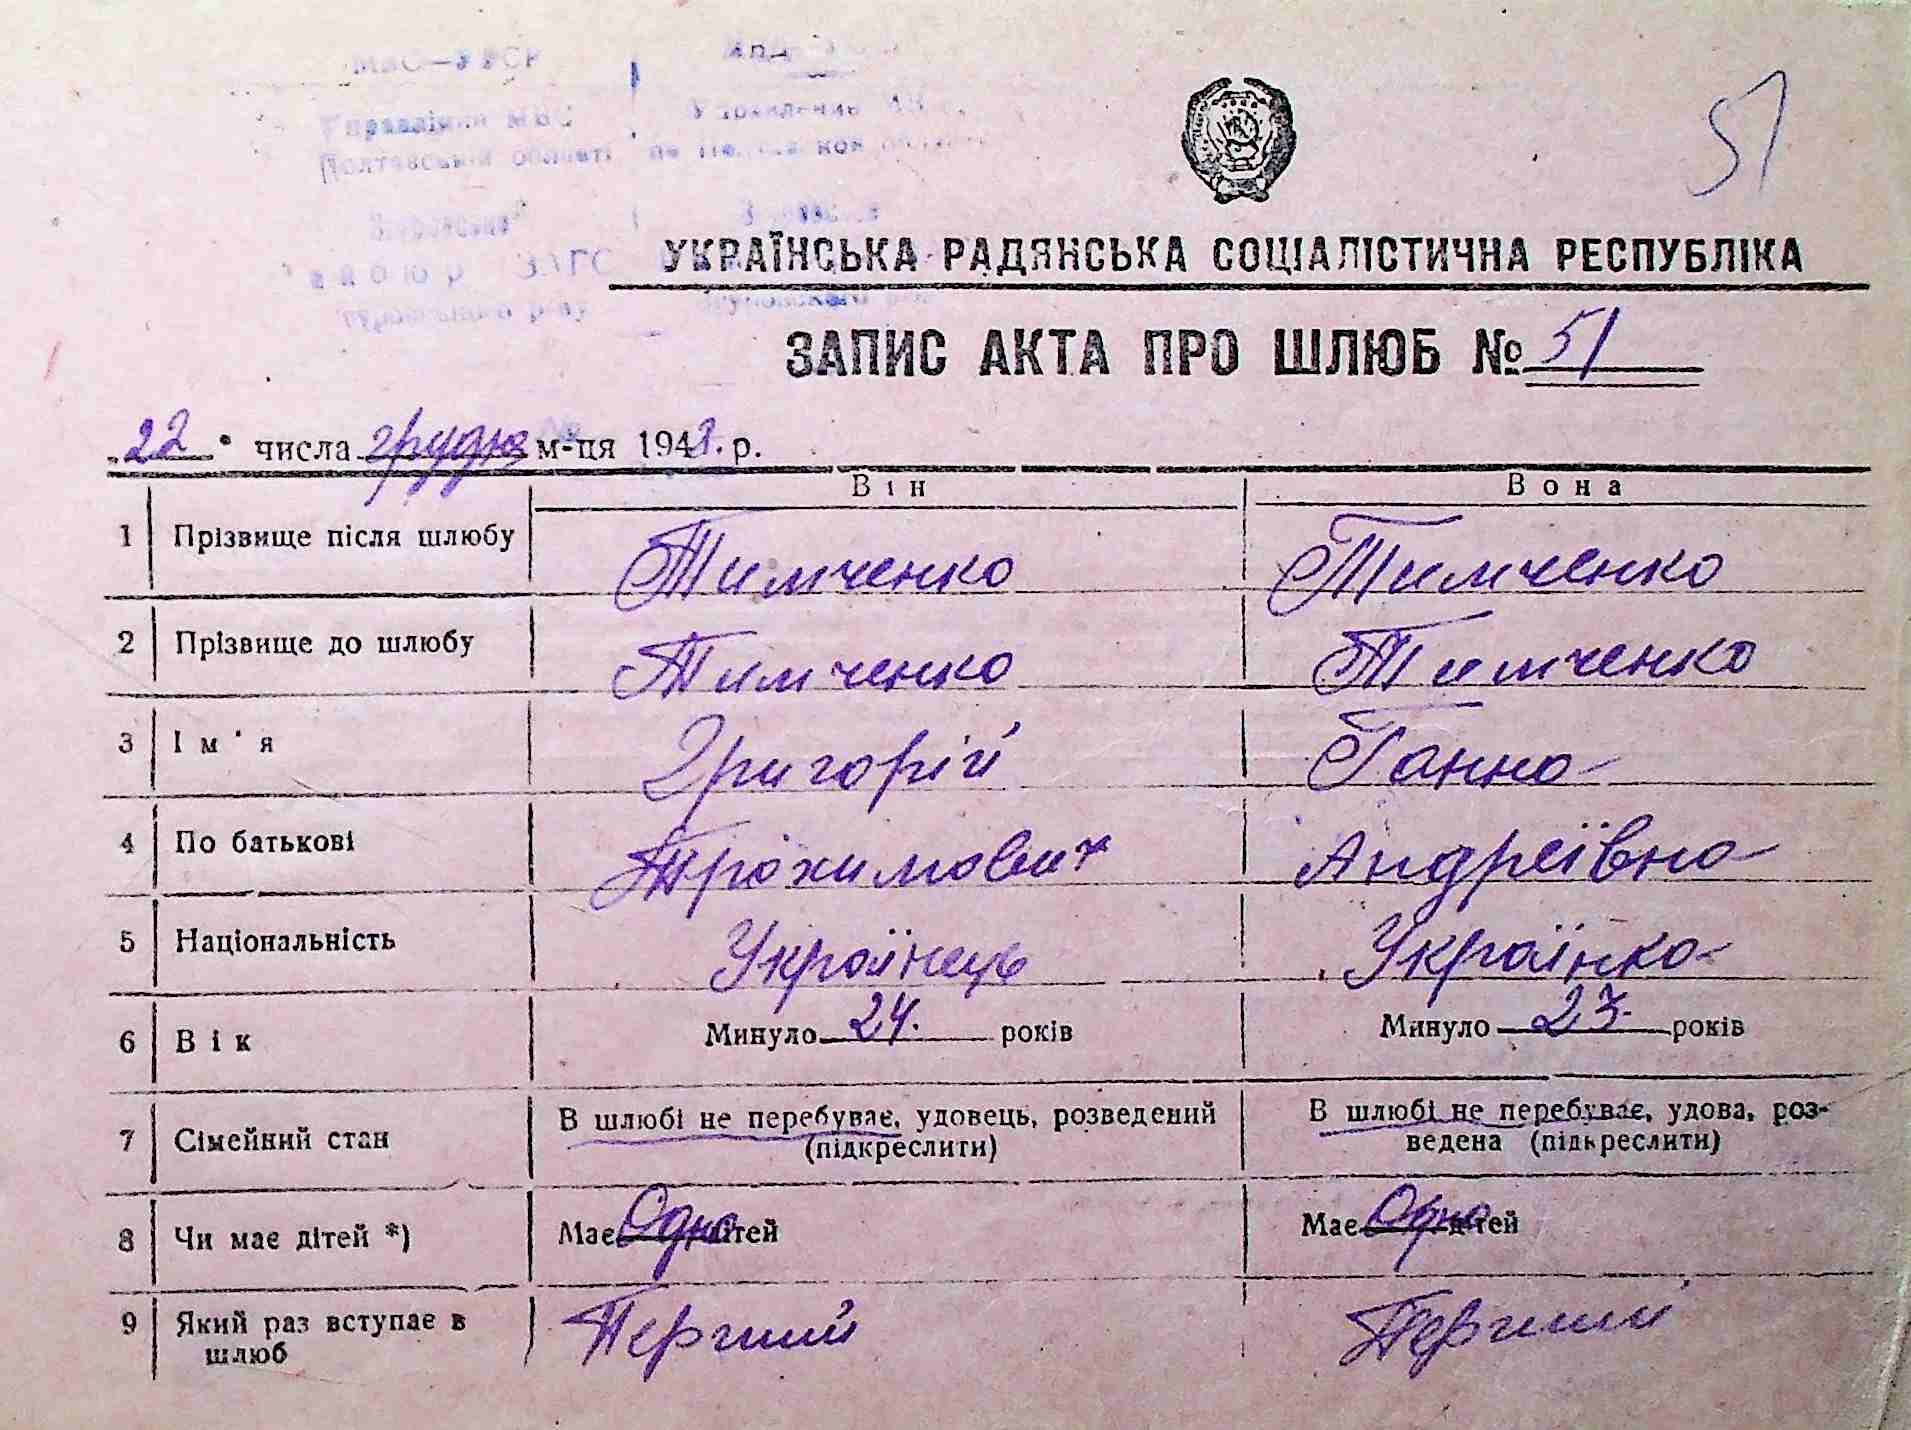 МВС—УРСР
Управління МВС Управление
Полтавській області по
ЗАГС
51
УКРАЇНСЬКА РАДЯНСЬКА СОЦІАЛІСТИЧНА РЕСПУБЛІКА
ЗАПИС АКТА ПРО ШЛЮБ № 51
22 числа грудня м-ця 1948. р.
Він Вона
1 Прізвище після шлюбу Тимченко Тимченко
2 Прізвище до шлюбу Тимченко Тимченко
3 Ім'я Григорій Ганна
4 По батькові Трохимович Андреївна
5 Національність Українець Українка
6 Вік Минуло 24. років Минуло 23. років
7 Сімейний стан В шлюбі не перебуває, удовець, розведений (підкреслити) В шлюбі не перебуває, удова, роз-
ведена (підкреслити)
8 Чи має дітей *) Має Одно дітей Має Одно дітей
9 Який раз вступає в Перший Перший
шлюб